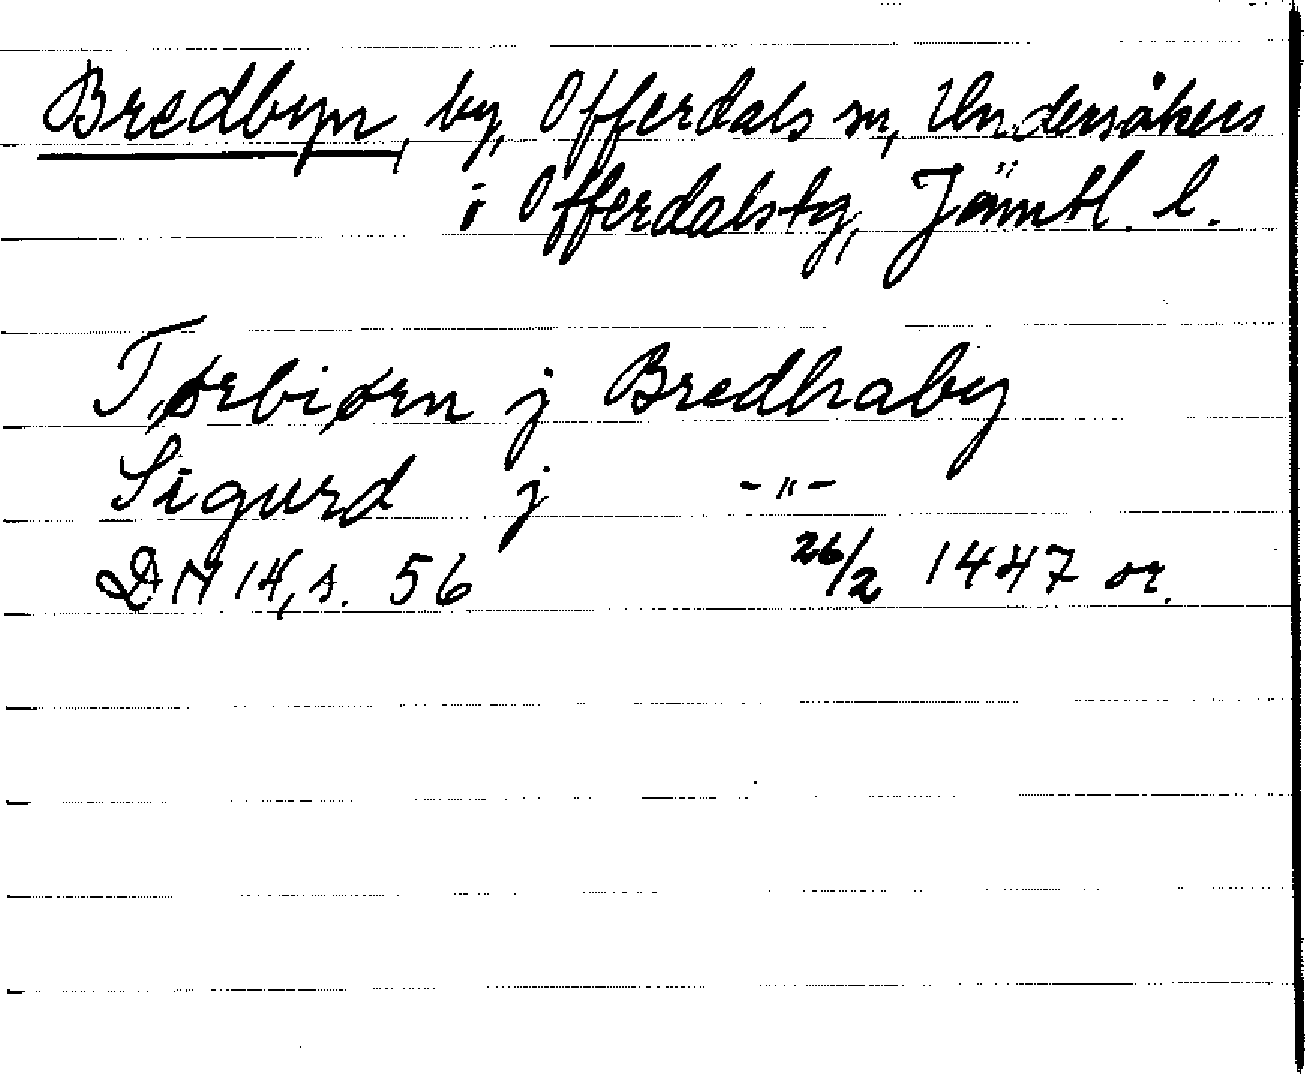 Bredbyn, by, Offerdals sn, Undersåkers
o Offerdalstg, Jämtl. l.
Tørbiørn j Bredhaby
Sigurd j -"-
DN 14, s. 56 26/2 1447 or.